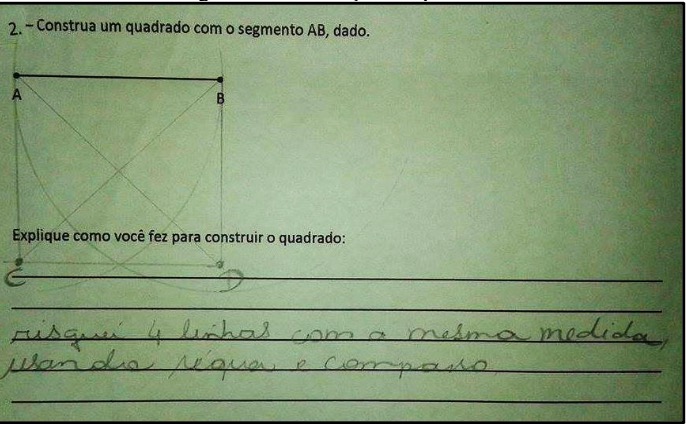 2. – Construa um quadrado com o segmento AB, dado.
A B
Explique como você fez para construir o quadrado:
C D
risquei 4 linhas com a mesma medida,
usando régua e compasso.